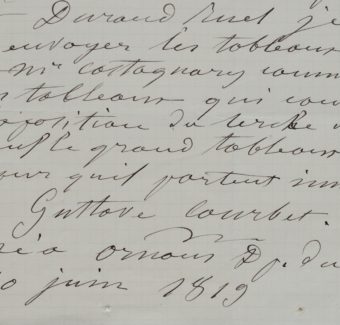 Durand Ruel je
envoyer les tableaux
mr castagnary comm
tableaux qui
position du cercle
le grand tableau
our quil partent imm
Gustave Courbet.
né a ornans Dp. du
10 juin 1819